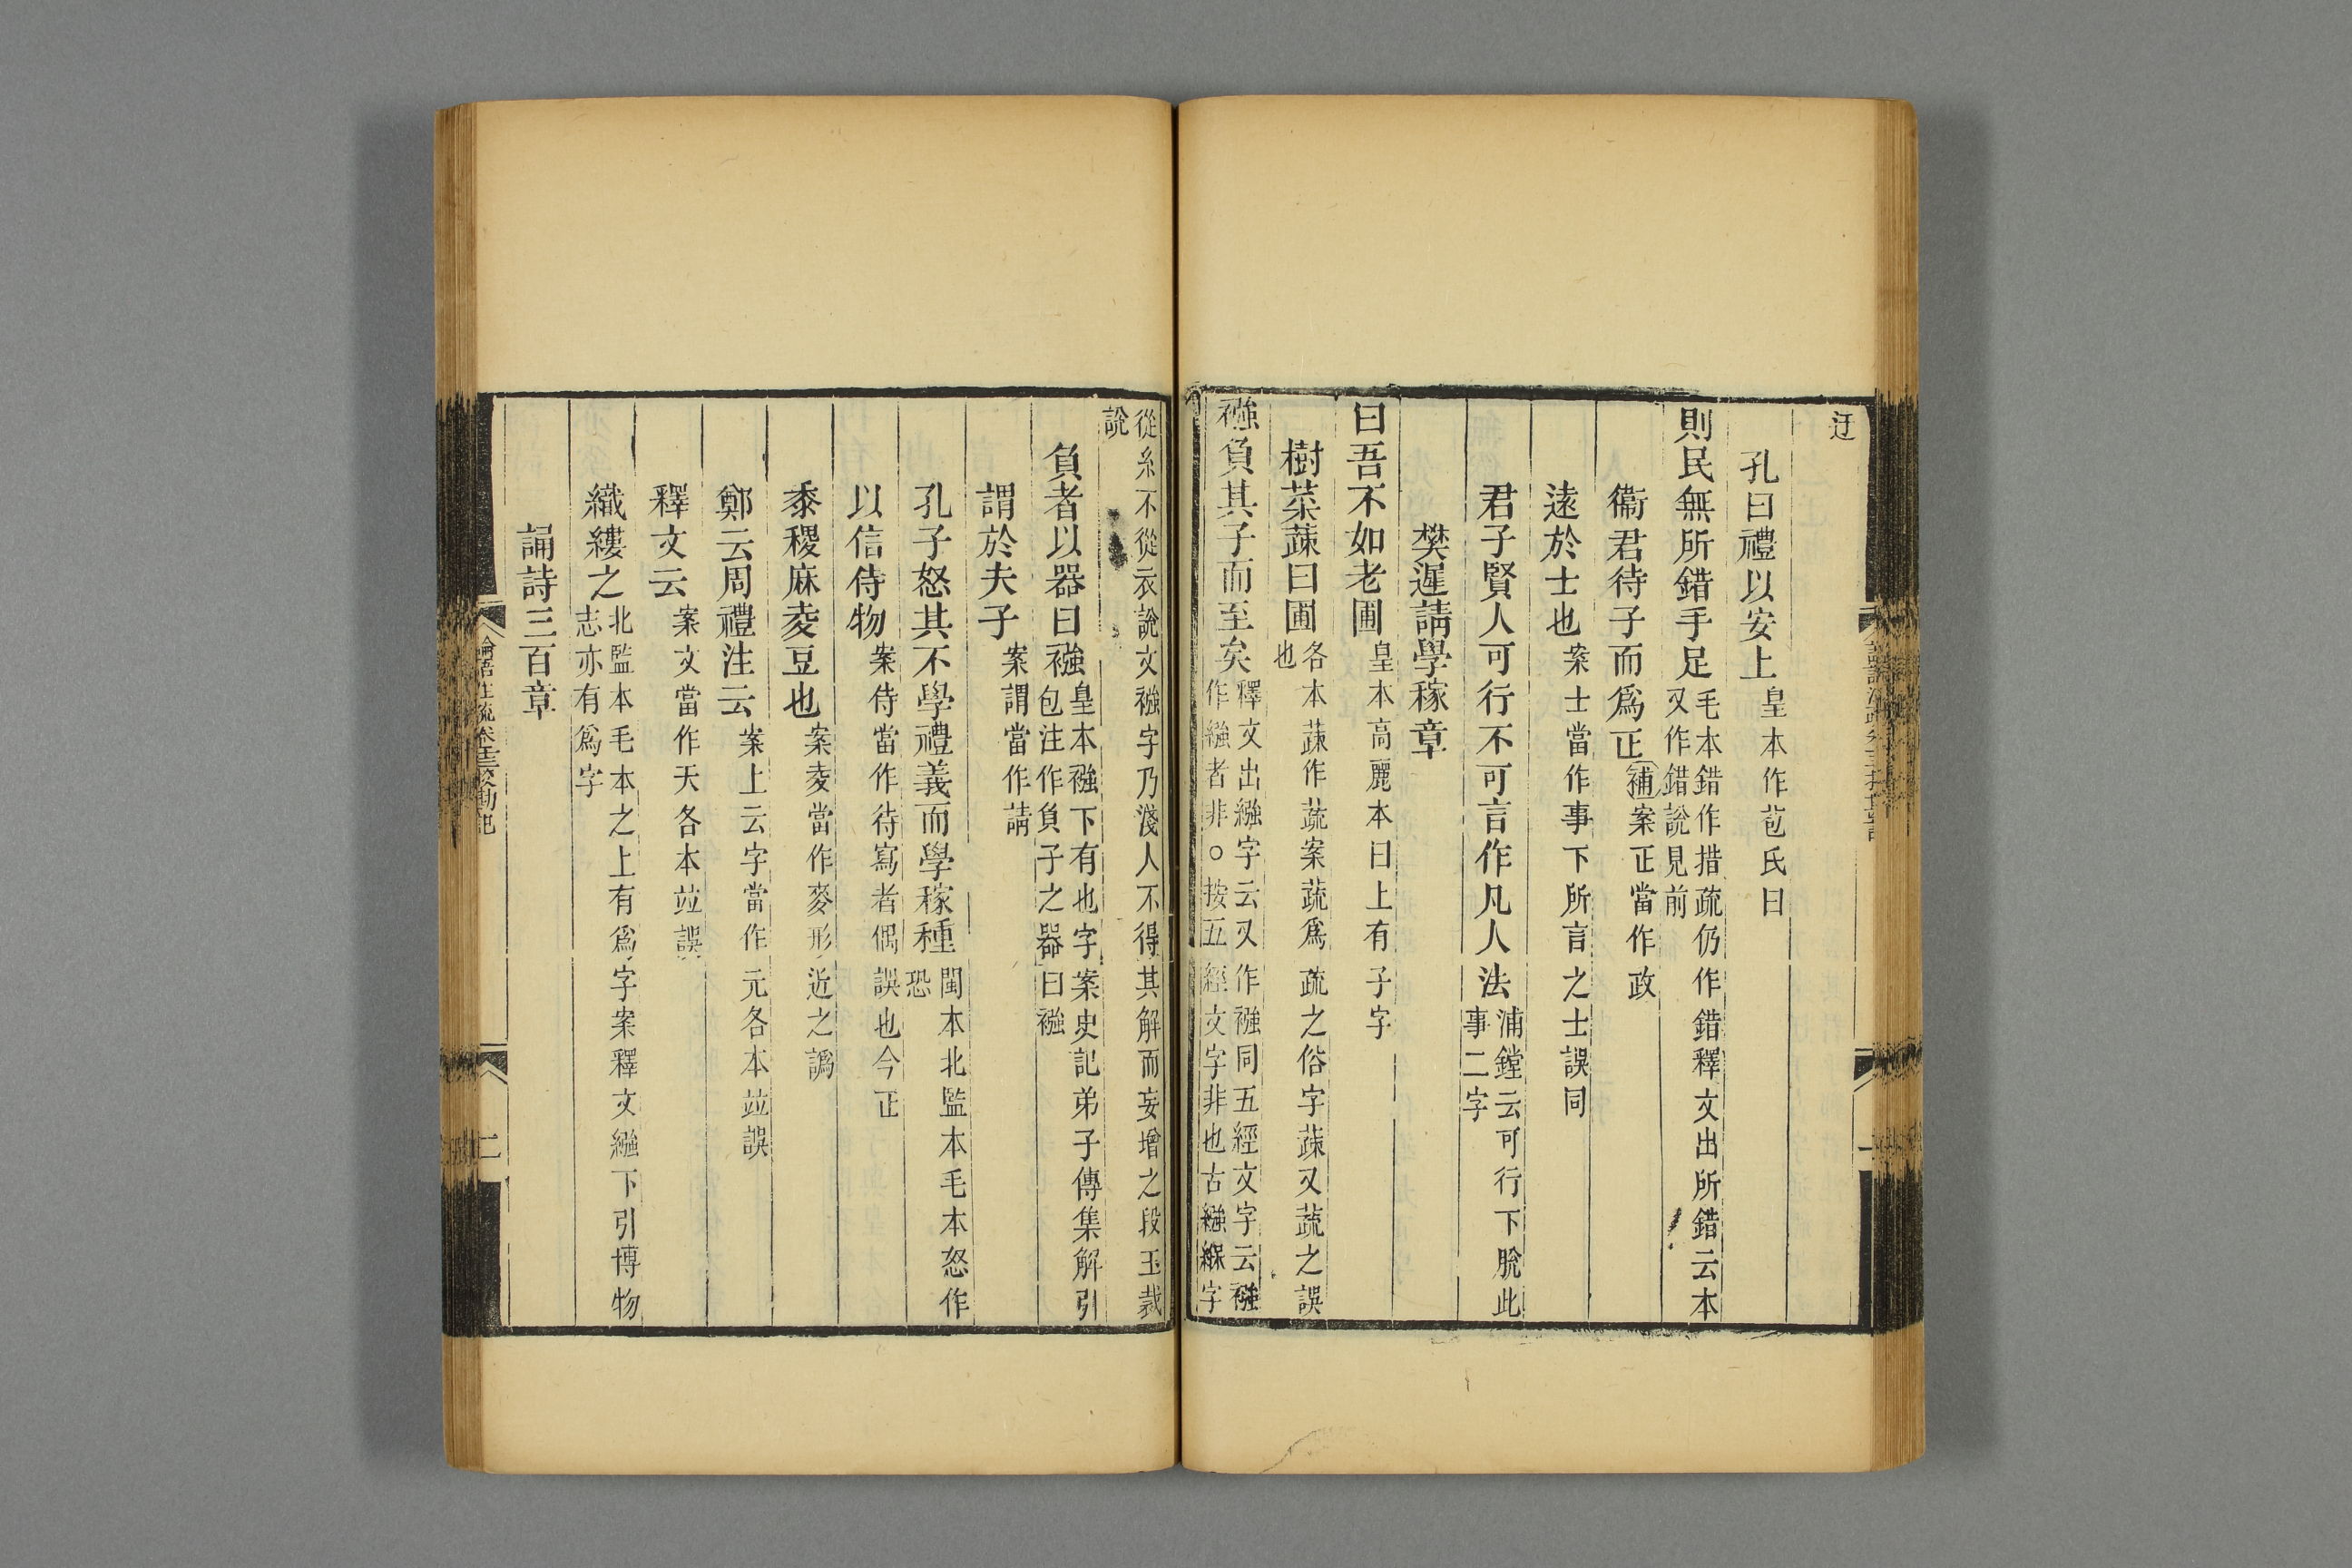 迂
孔曰禮以安上皇本作苞氏曰
則民無所錯手足毛本錯作措疏仍作錯釋文出所錯云本又作錯說見前
衞君待子而爲正補案正當作政
遠於士也案士當作事下所言之士誤同
君子賢人可行不可言作凡人法浦鏜云可行下脫此事二字
樊遲請學稼章
曰吾不如老圃皇本高麗本曰上有子字
樹菜蔬曰圃各本蔬作蔬案蔬爲疏之俗字蔬又蔬之誤也
襁負其子而至矣釋文出繈字云又作襁同五經文字云襁作繈者非○按五經文字非也古繈緥字
從糸不從衣說文襁字乃淺人不得其解而妄增之段玉裁說
負者以器曰襁皇本襁下有也字案史記弟子傳集解引包注作負子之器曰襁
謂於夫子案謂當作請
孔子怒其不學禮義而學稼種閩本北監本毛本怒作恐
以信侍物案侍當作待寫者偶誤也今正
黍稷麻夌豆也案夌當作麥形近之譌
鄭云周禮注云案上云字當作元各本竝誤
釋文云案文當作天各本竝誤
織縷之北監本毛本之上有爲字案釋文繈下引博物志亦有爲字
誦詩三百章
論語注疏卷十三校勘記
二